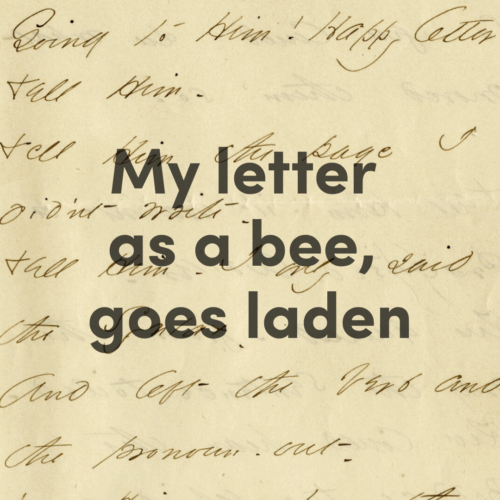 Going to Him! Happy letter
Tell Him -
Tell Him the page I
didn't write -
Tell Him - I only said
the Syntax -
And left the Verb and
the pronoun out -
My letter
as a bee,
goes laden